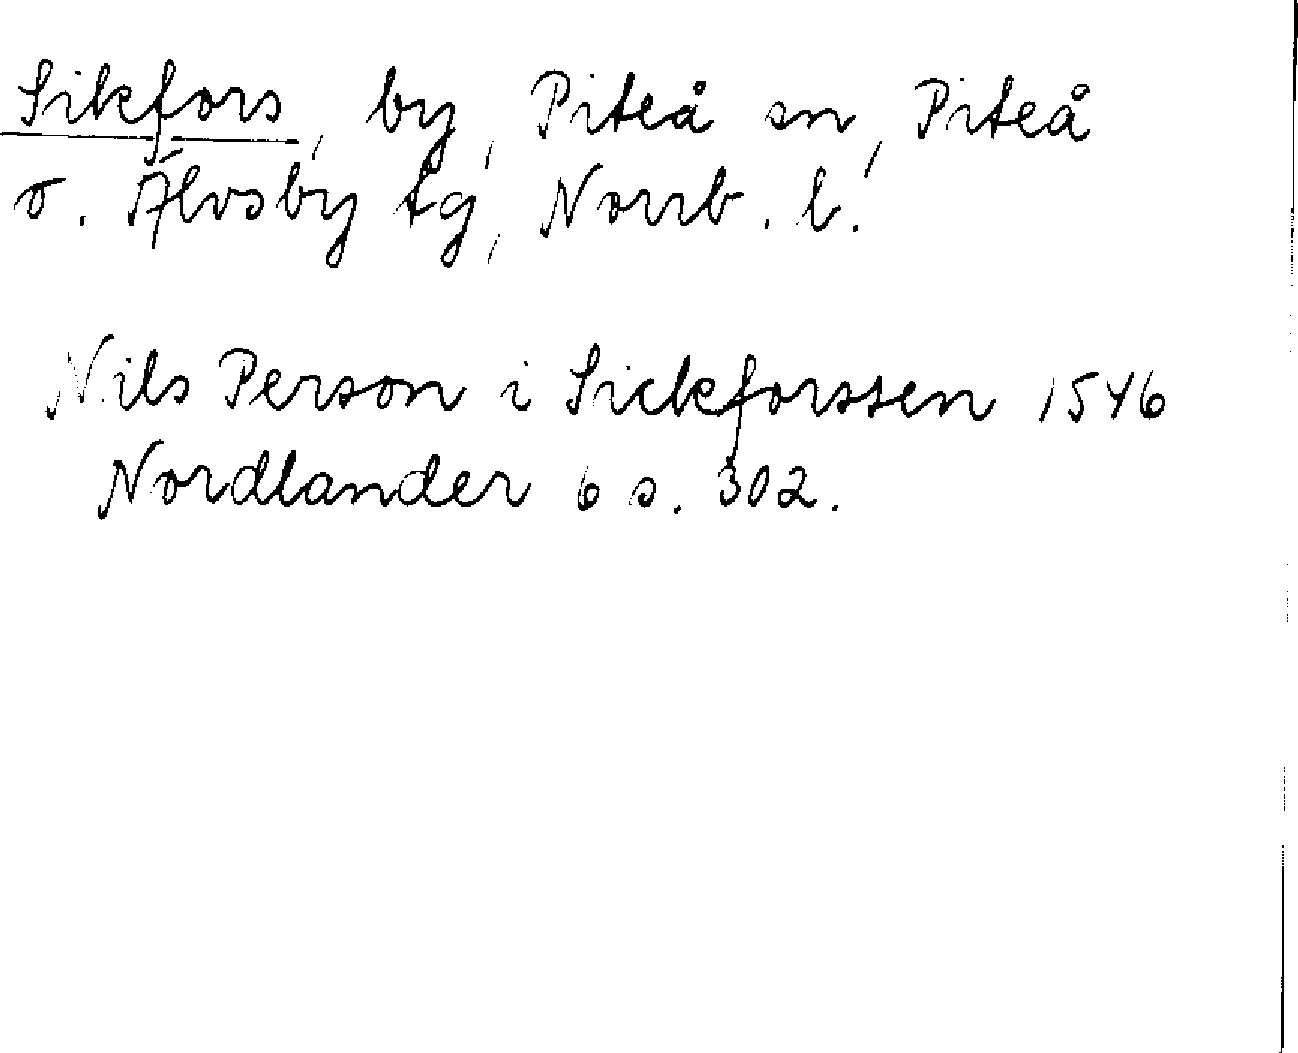 Sikfors, by, Piteå sn, Piteå
o. Älvsby tg, Norrb. l.
Nils Person i Sickforssen 1546
Nordlander 6 s. 302.